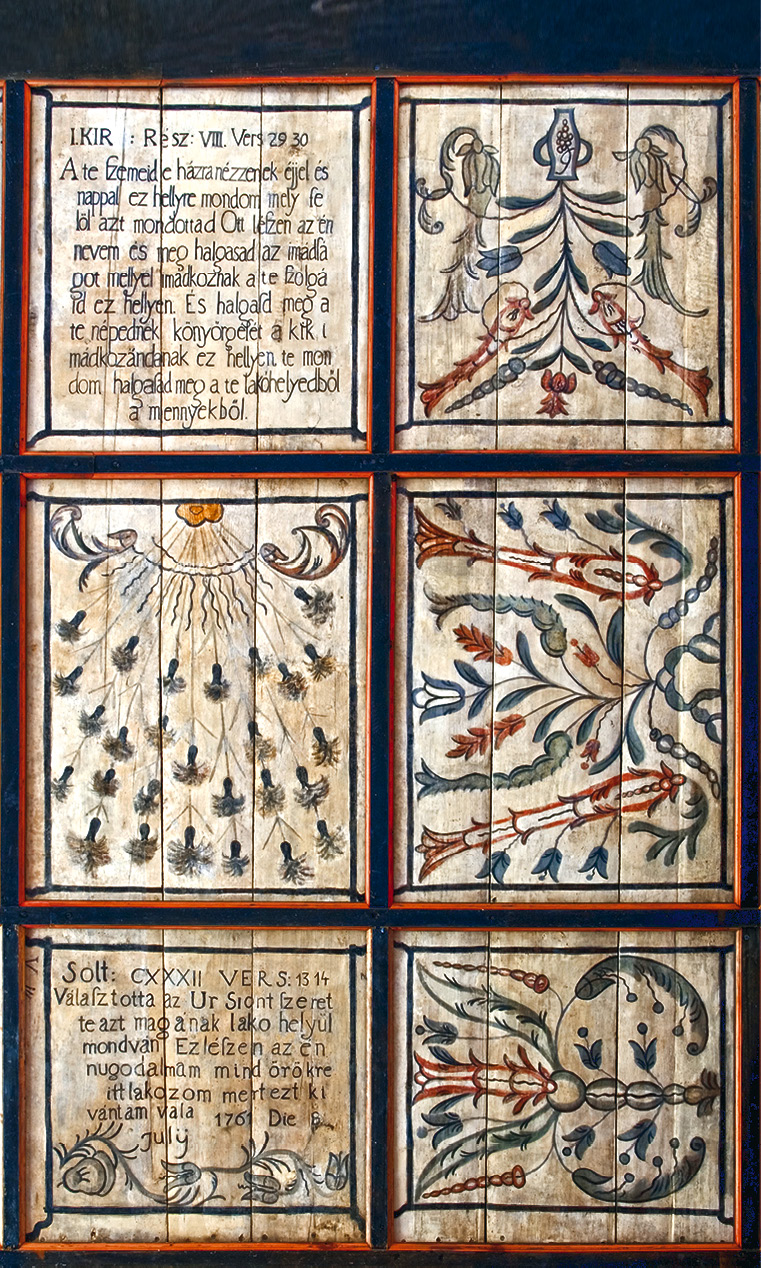 I.KIR : Rész: VIII. Vers 29 30
A te szemeid e házra nézzenek éjjel és
nappal ez hellyre mondom mely fe
löl azt mondottad Ott lészen az én
nevem és meg halgasad az imádsá
got mellyel imádkoznak a te szolgá
id ez hellyen. És halgasd meg a
te népednek könyörgését a kik i
mádkozándanak ez hellyen. te mon
dom halgasad meg a te lakóhelyedből
a mennyekből.
Solt: CXXXII VERS: 13 14
Válasz totta az Ur Siont szeret
te azt magának lako helyül
mondván Ez lészen az én
nugodalmam mind örökre
itt lakozom mert ezt ki
vántam vala 1761 Die 8
Julÿ